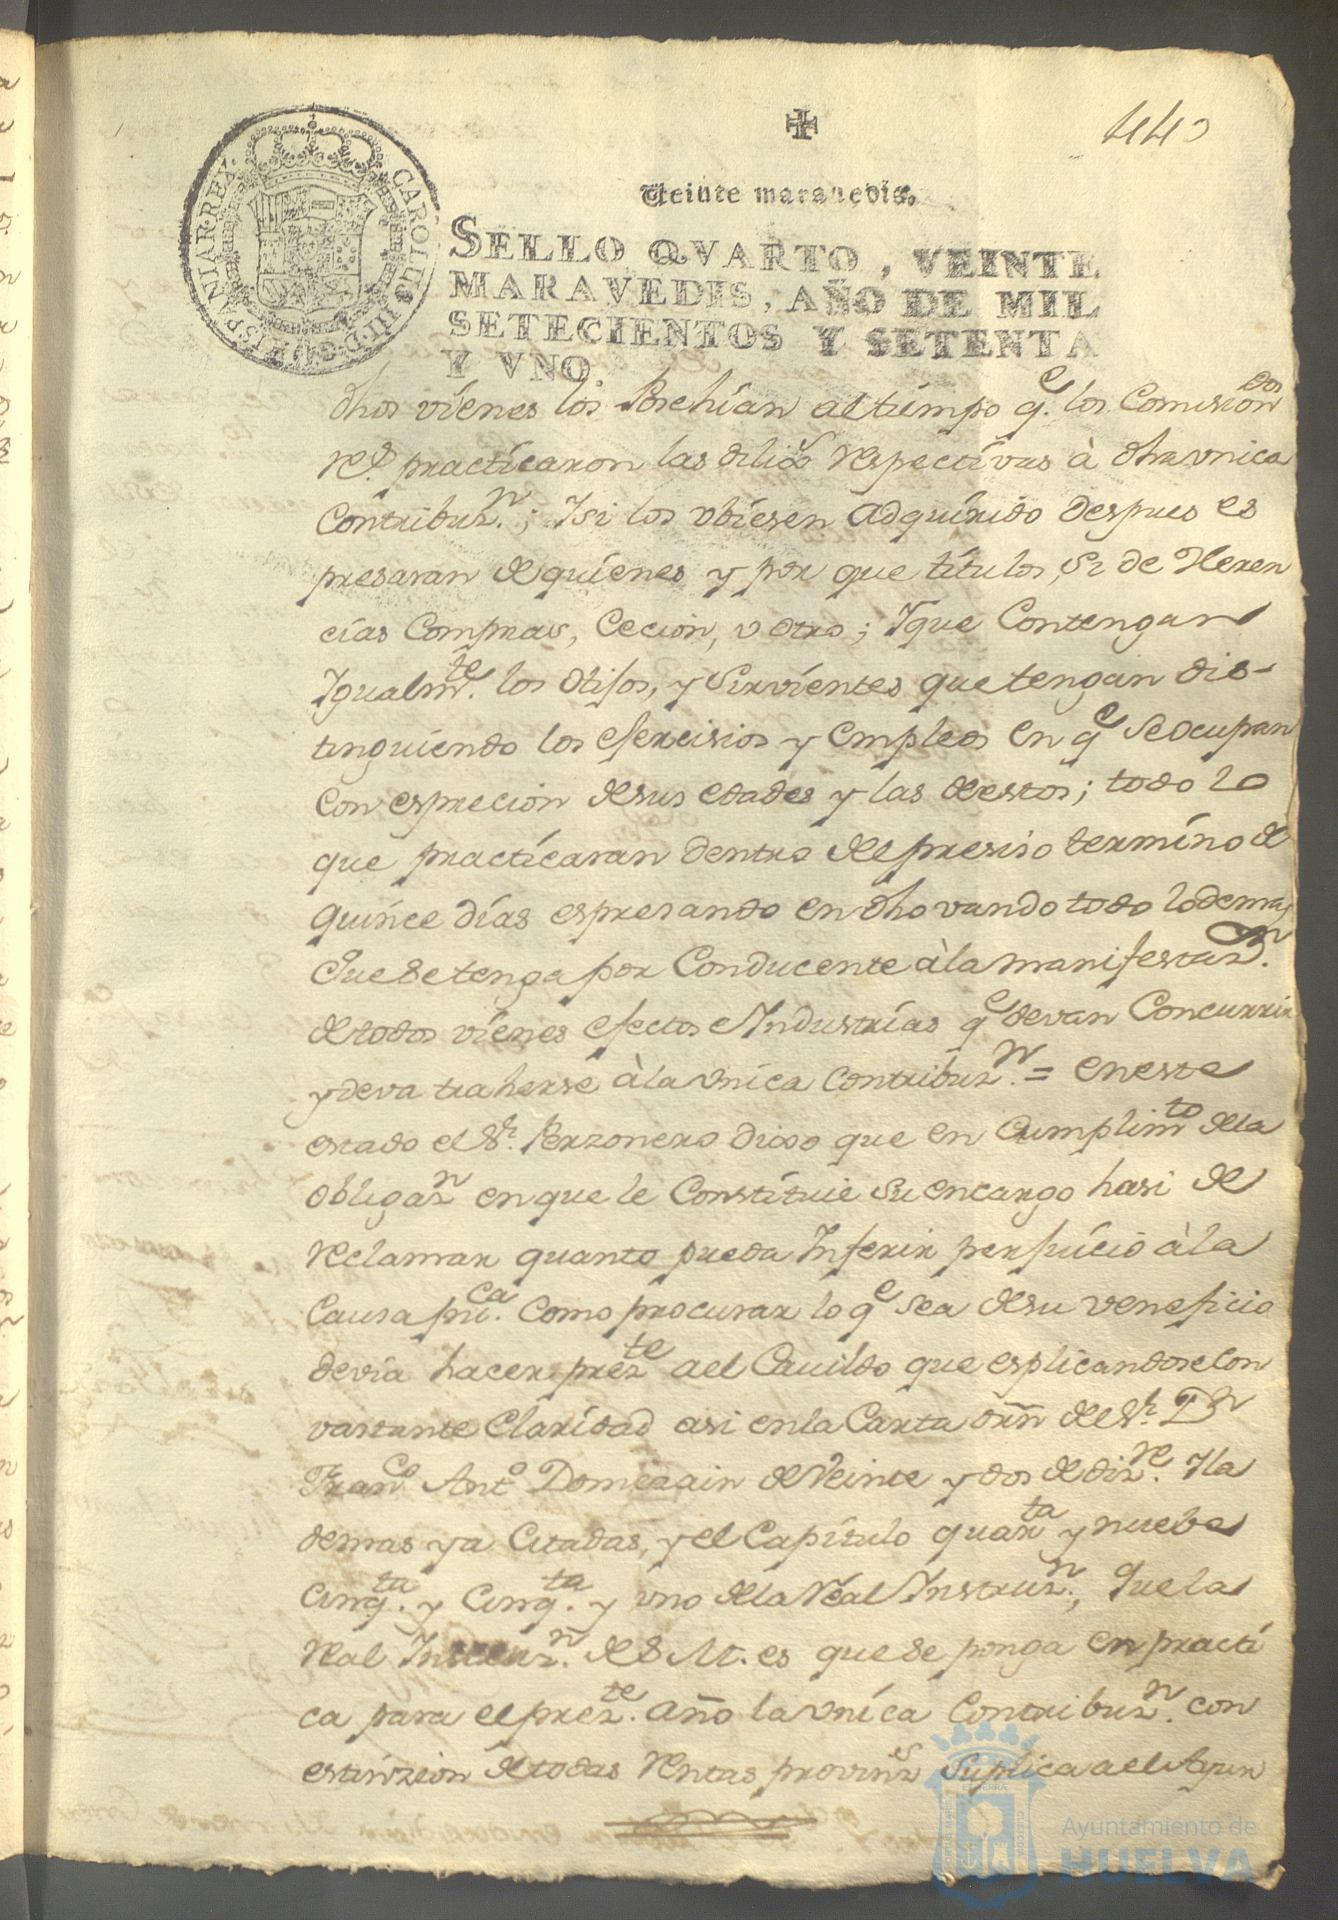 440
Veinte maravedis.
SELLO QVARTO, VEINTE
MARAVEDIS, AÑO DE MIL
SETECIENTOS Y SETENTA
Y VNO.
CAROLUS III D G HISPANIAR REX
dhos vienes los Posehían al tiempo q.e los Comisiondos
Rs. practicaron las dilixs respectivas à dha vnica
Contribuz.n; Y si los vbiesen adquirido despues es
presaran de quienes y por que titulos, Si de Heren
cias Compras, Cecion, v otro; Y que Contengan
Ygualm.te los Hijos, y Sirvientes que tengan dis-
tinguiendo los ejercisios y empleos en q.e Se ocupan
con esprecion de sus edades y las de estos; todo lo
que practicaran dentro del presiso termino de
quince días espresando en dho vando todo lo demas
que se tenga por Conducente à la manifestaz.n
de todos vienes efectos e Yndustrias q.e devan Concurrir
y deva traherse à la vnica contribuz.n = en este
estado el S.r Perzonero dixo que en Cumplim.to de la
obligaz.n en que le Constituie Su encargo hasi de
reclamar quanto pueda Inferir perjuicio à la
Causa pu.ca como procurar lo q.e sea de su veneficio
devia hacer prez.te a el Cavildo que esplicandose con
vastante Claridad asi en la Carta orn del S.r D.n
Fran.co Ant.o Domezain de Veinte y dos de diz.re Y la
demas ya Citadas, y el Capitulo quar.ta y nuebe
Cinq.ta y Cinq.ta y vno de la Real Instruz.n, que la
Real Intenz.n de S. M. es que se ponga en practi
ca para el prez.te año la vnica Contribuz.n con
estinzion de todas Rentas provinz.s Suplica a el Ayun
Ayuntamiento de
HUELVA